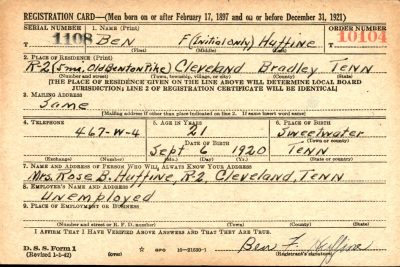 REGISTRATION CARD—(Men born on or after February 17, 1897 and on or before December 31, 1921)
SERIAL NUMBER 1. NAME (Print) ORDER NUMBER
1108 BEN F (Initial only) Huffine 10104
(First) (Middle) (Last)
2. PLACE OF RESIDENCE (Print)
R-2 (5 mi. Old Benton Pike) Cleveland Bradley Tenn
(Number and street) (Town, township, village, or city) (County) (State)
[THE PLACE OF RESIDENCE GIVEN ON THE LINE ABOVE WILL DETERMINE LOCAL BOARD
JURISDICTION; LINE 2 OF REGISTRATION CERTIFICATE WILL BE IDENTICAL]
3. MAILING ADDRESS
Same
[Mailing address if other than place indicated on line 2. If same insert word same]
4. TELEPHONE 5. AGE IN YEARS 6. PLACE OF BIRTH
467-W-4 21 Sweetwater
DATE OF BIRTH (Town or county)
Sept 6 1920 Tenn
(Exchange) (Number) (Mo.) (Day) (Yr.) (State or country)
7. NAME AND ADDRESS OF PERSON WHO WILL ALWAYS KNOW YOUR ADDRESS
Mrs. Rose B. Huffine, R-2, Cleveland, Tenn
8. EMPLOYER'S NAME AND ADDRESS
Unemployed
9. PLACE OF EMPLOYMENT OR BUSINESS
(Number and street or R. F. D. number) (Town) (County) (State)
I AFFIRM THAT I HAVE VERIFIED ABOVE ANSWERS AND THAT THEY ARE TRUE.
D. S. S. Form 1
(Revised 1-1-42) GPO Ben F. Huffine
(Registrant's signature)